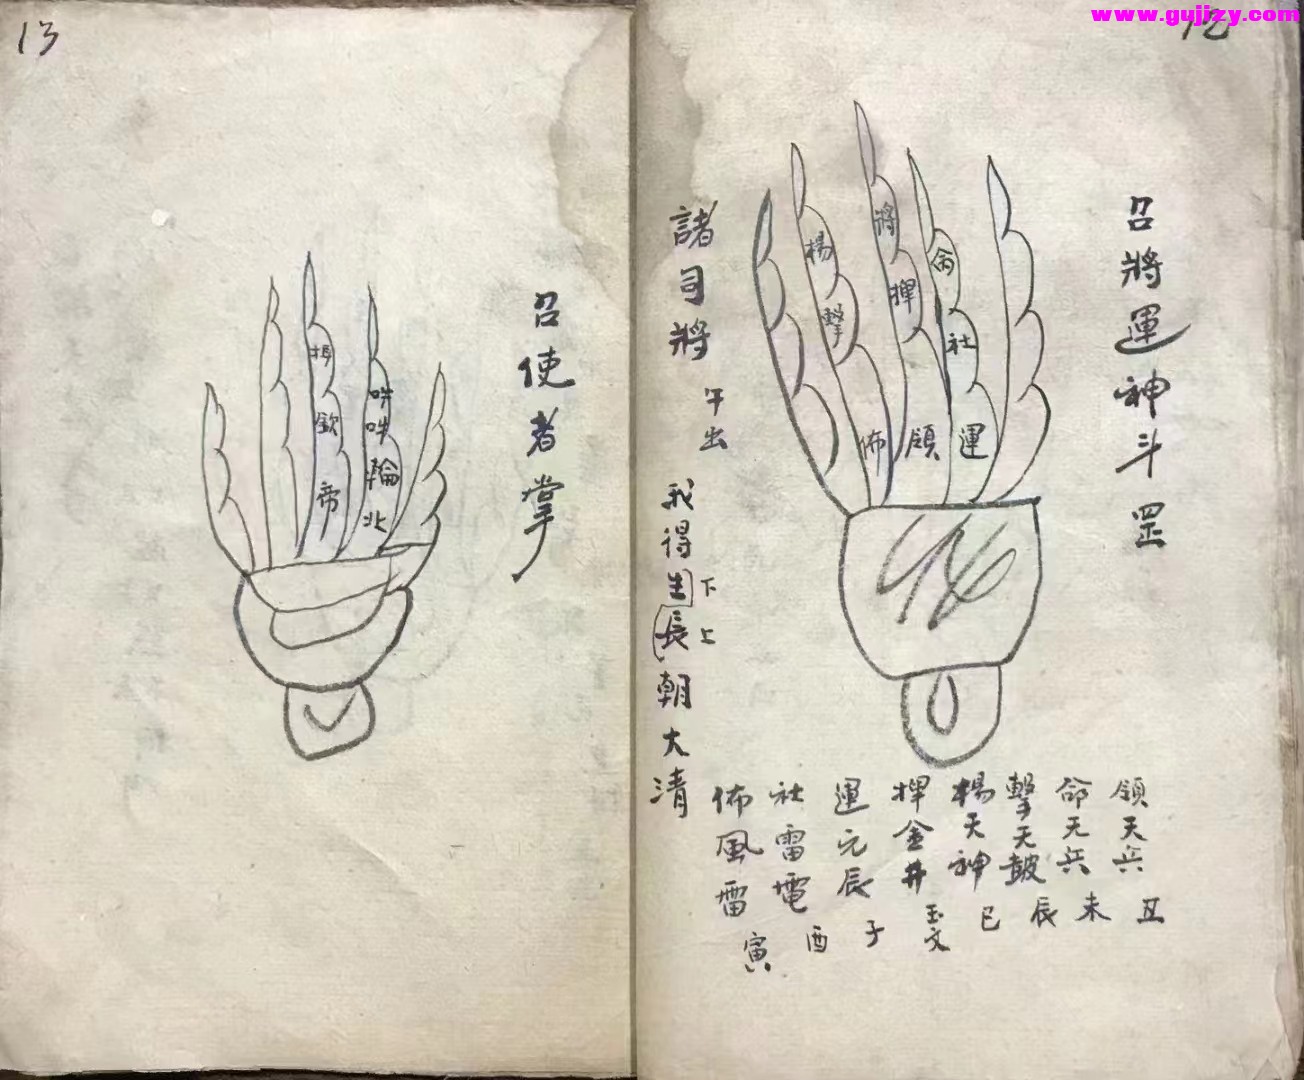 www.gujizy.com
12
召將運神斗罡
將
楊
命
揮
擊
社
佈
領
運
領天兵 丑
命天兵 未
擊天鼓 辰
楊天神 巳
揮金井 玉文
運元辰 子
社雷電 酉
佈風雷 寅
諸司將 午出 我得生下長上朝大清
13
召使者掌
欽
帝
吽
吽
輪
北